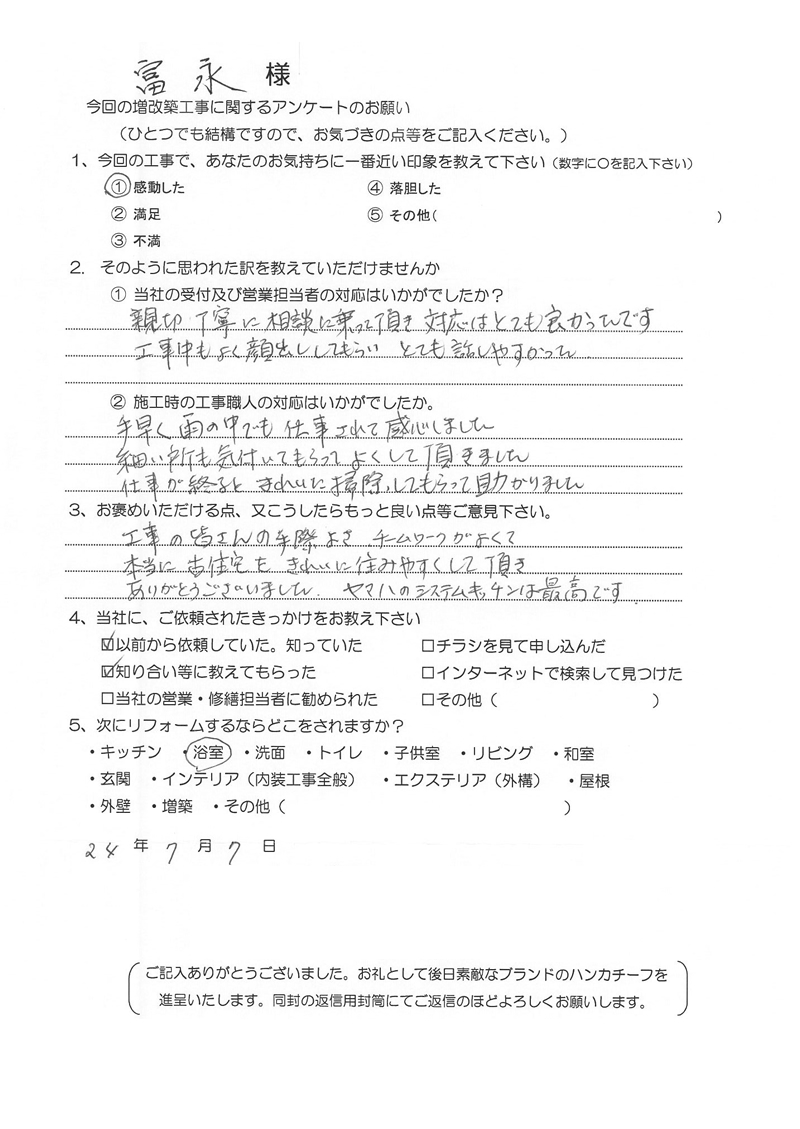 富永 様
今回の増改築工事に関するアンケートのお願い
（ひとつでも結構ですので、お気づきの点等をご記入ください。）
1、今回の工事で、あなたのお気持ちに一番近い印象を教えて下さい（数字に〇を記入下さい）
① 感動した ④ 落胆した
② 満足 ⑤ その他( )
③ 不満
2. そのように思われた訳を教えていただけませんか
① 当社の受付及び営業担当者の対応はいかがでしたか？
親切 丁寧に相談に乗って頂き 対応はとても良かったです
工事中もよく顔出ししてもらい とても話しやすかった
② 施工時の工事職人の対応はいかがでしたか。
手早く 雨の中でも 仕事されて感心しました
細い所も気付いてもらってよくして頂きました
仕事が終ると きれいに掃除してもらって助かりました
3、お褒めいただける点、又こうしたらもっと良い点等ご意見下さい。
工事の皆さんの手際よさ チームワークがよくて
本当に古住宅を きれいに住みやすくして頂き
ありがとうございました. ヤマハのシステムキッチンは最高です
4、当社に、ご依頼されたきっかけをお教え下さい
☑以前から依頼していた。知っていた □チラシを見て申し込んだ
☑知り合い等に教えてもらった □インターネットで検索して見つけた
□当社の営業・修繕担当者に勧められた □その他（ ）
5、次にリフォームするならどこをされますか？
・キッチン ・浴室 ・洗面 ・トイレ ・子供室 ・リビング ・和室
・玄関 ・インテリア（内装工事全般） ・エクステリア（外構） ・屋根
・外壁 ・増築 ・その他（ ）
24 年 7 月 7 日
ご記入ありがとうございました。お礼として後日素敵なブランドのハンカチーフを
進呈いたします。同封の返信用封筒にてご返信のほどよろしくお願いします。